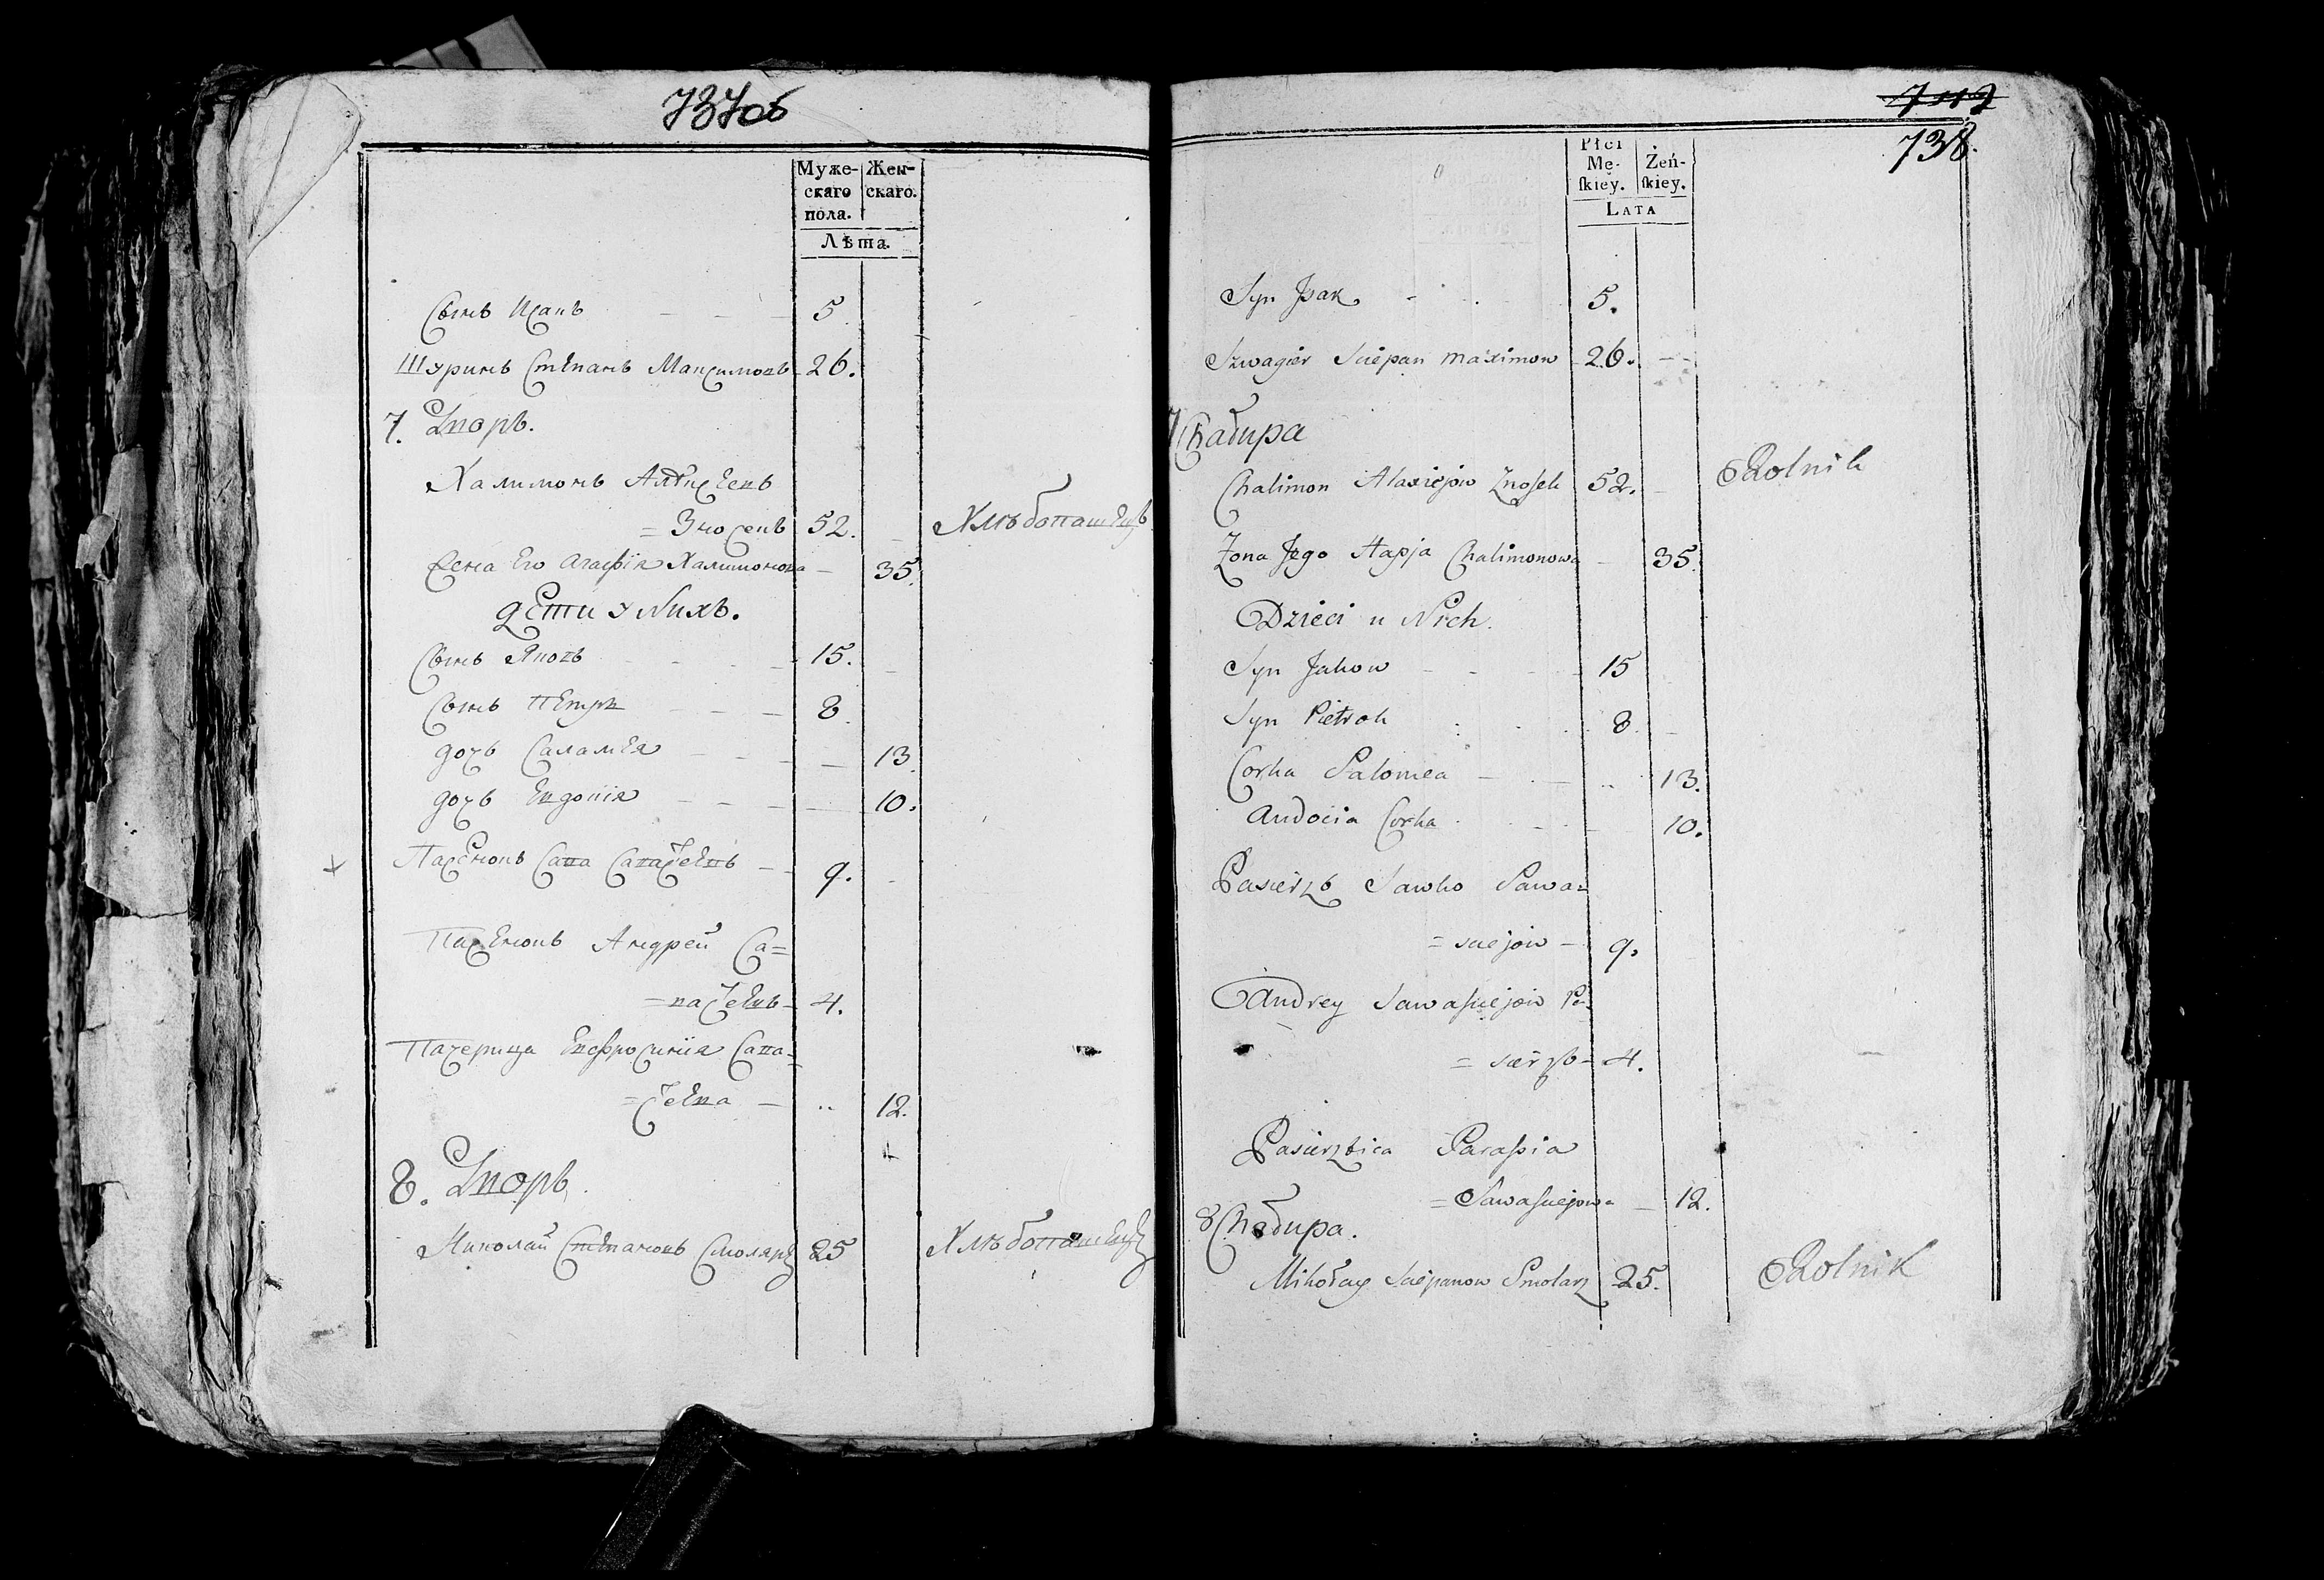 737об
Муже-
скаго
пола.
Жен-
скаго.
Лѣта.
Сынъ Исакъ 5
Шуринъ Степанъ Максимовъ 26.
7. Дворъ.
Халимонъ Алексеевъ
= Зносекъ 52.
Хлѣбопашецъ
Жена Его Агафія Халимонова 35.
дети у Nихъ.
Сынъ Яковъ 15.
Сынъ Петръ 8.
дочь Саламея 13.
дочь Евдокия 10.
Пасенокъ Сава 9.
Пасенокъ Андрей Са=
4.
Пачерица Евфросиния Сава=
12.
8. Дворъ.
Николай Степановъ Смоляръ 25
Хлѣбопашецъ
738.
Płci
Mę-
ſkiey.
Żeń-
ſkiey.
Lata
Syn Jsak 5.
Szwagier Sciepan Maximow 26.
7 Chałupa
Chalimon Alaxiejow Znosek 52.
Rolnik
Żona Jego Hapja Chalimonowa 35.
Dzieci u Nich.
Syn Jakow 15
Syn Pietrok 8
Corka Salomea 13.
Audocia Corka 10.
Pasierzb Sawko Sawa=
= sciejow 9.
Andrey Sawasciejow Pa=
= sierzb 4.
Pasierzbica Parasia
= Sawasciejowa 12.
8 Chałupa.
Mikołay Sciepanow Smolarz 25.
Rolnik